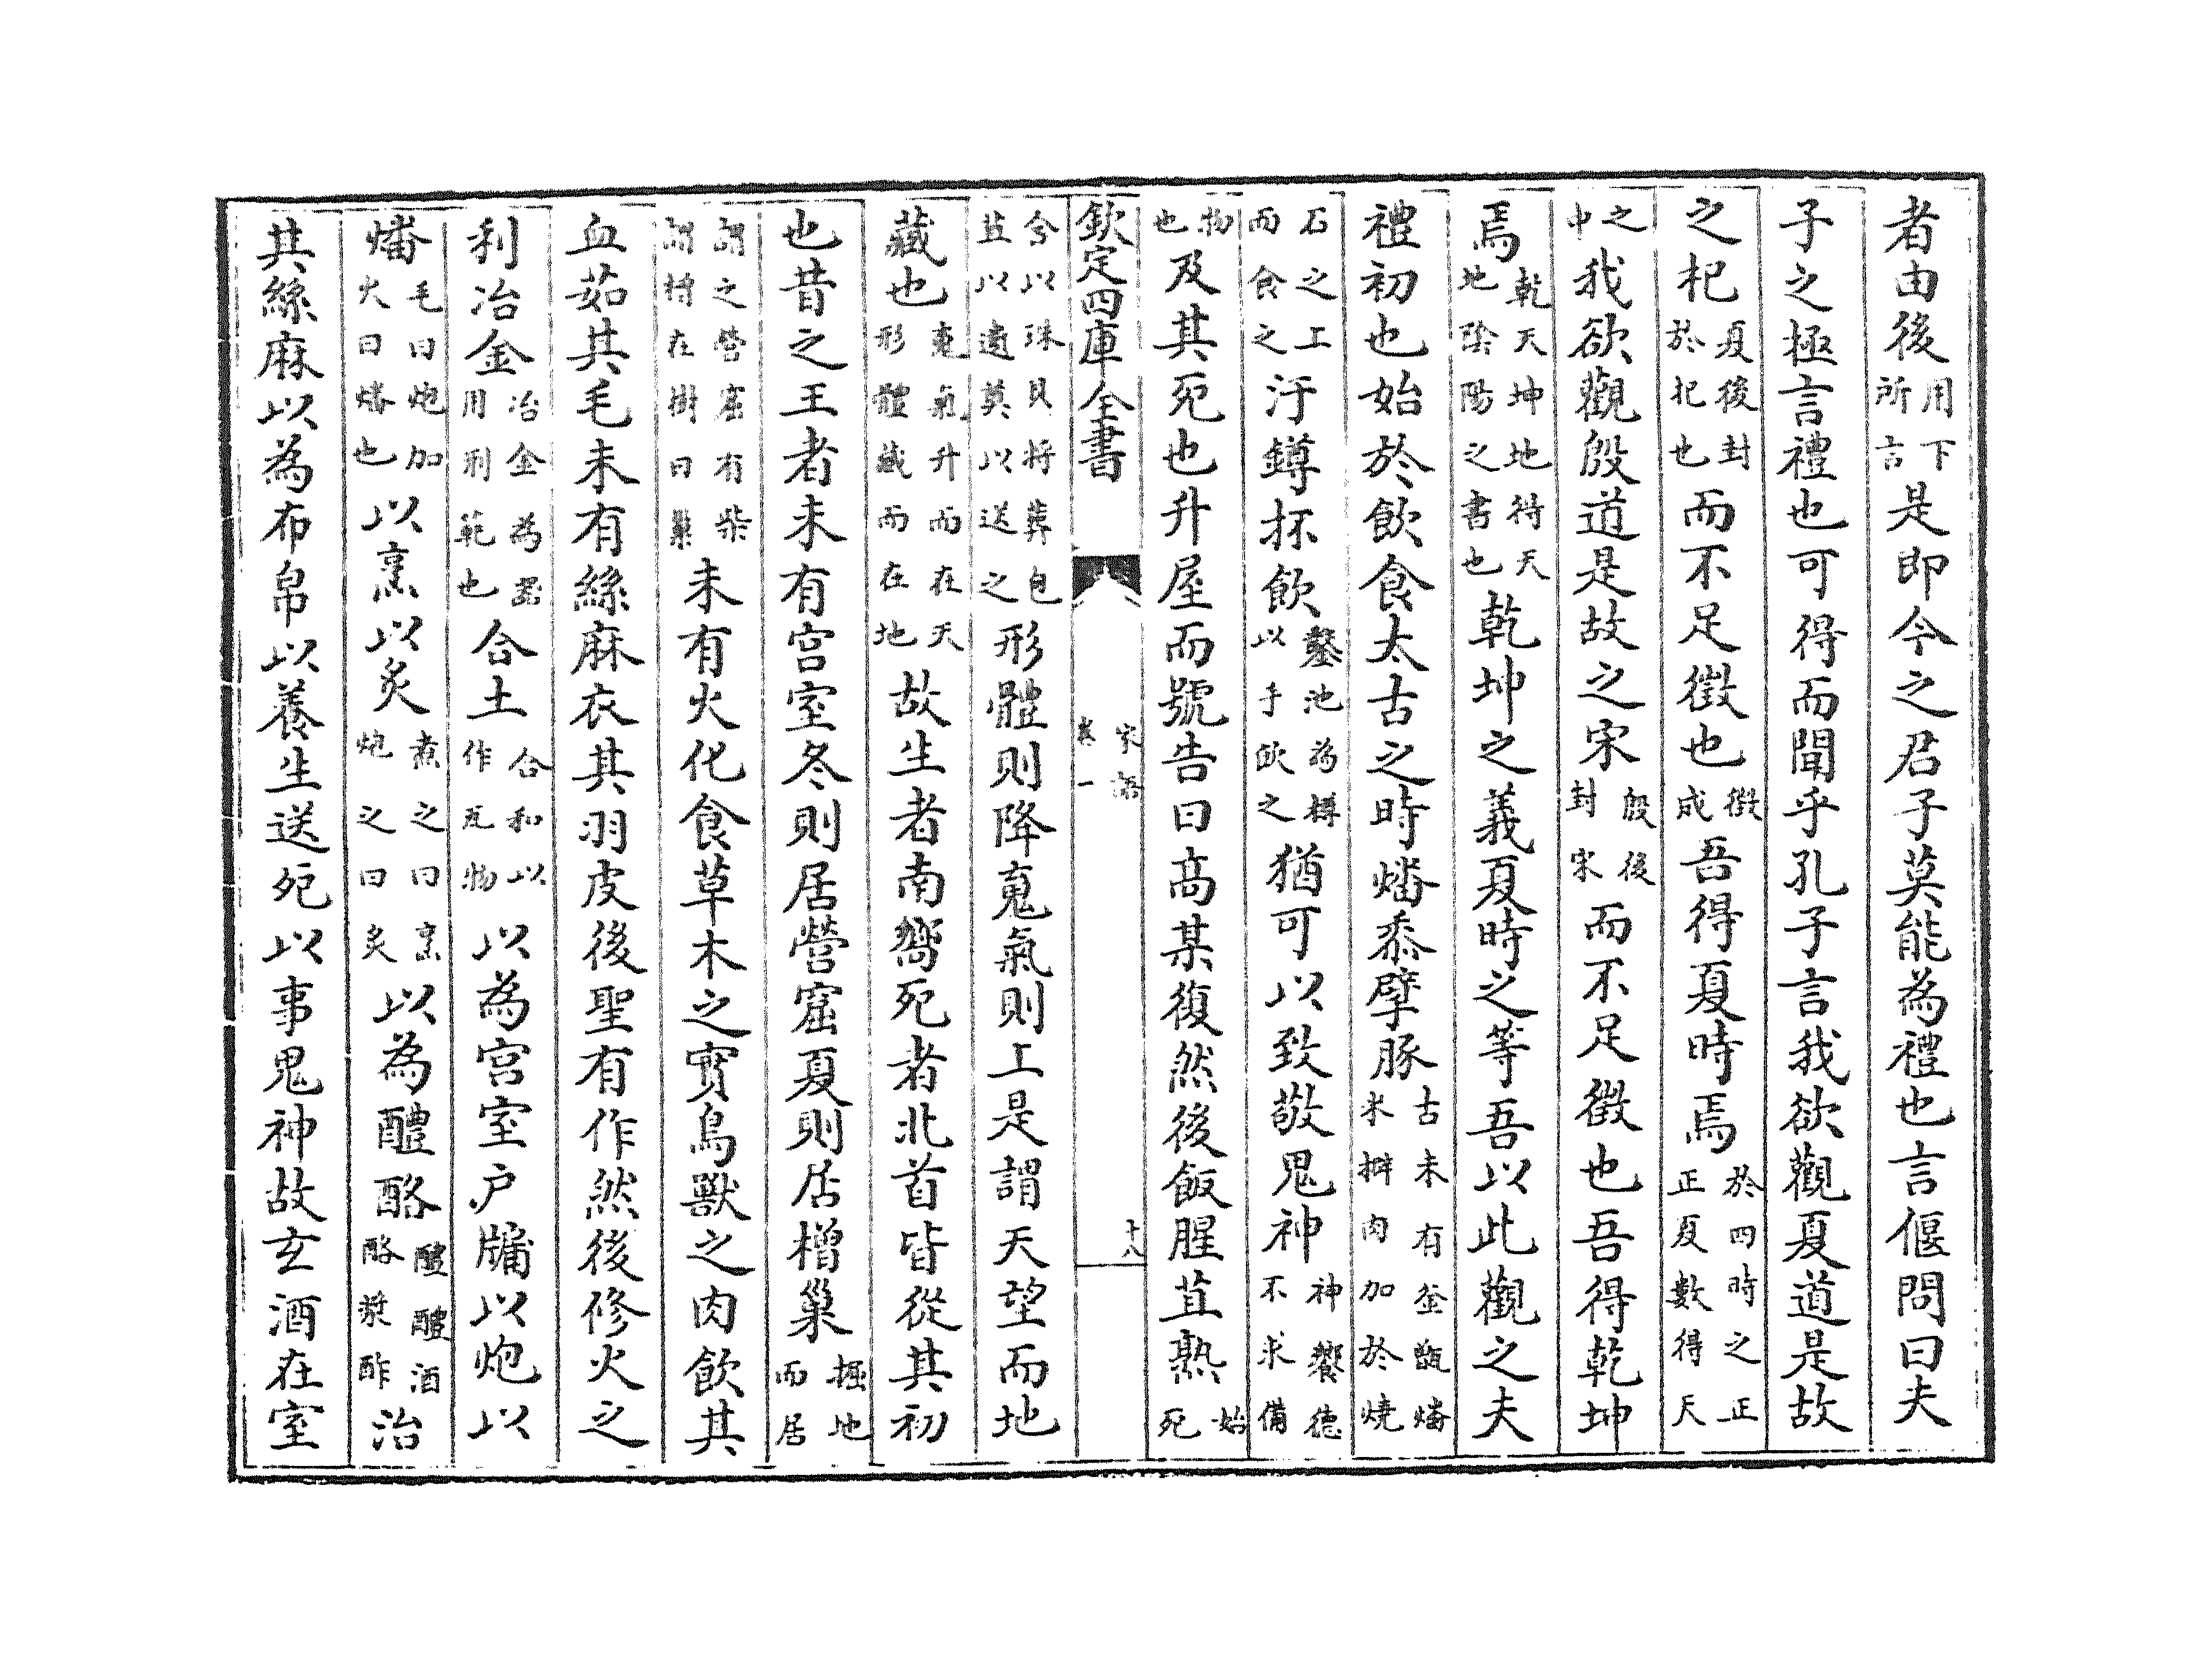 者由後用下所言是即今之君子莫能為禮也言偃問曰夫
子之極言禮也可得而聞乎孔子言我欲觀夏道是故
之杞夏後封於杞也而不足徵也徵成吾得夏時焉於四時之正正夏數得天
之中我欲觀殷道是故之宋殷後封宋而不足徵也吾得乾坤
焉乾天坤地得天地陰陽之書也乾坤之義夏時之等吾以此觀之夫
禮初也始於飲食太古之時燔黍擘豚古未有釜甑燔米擗肉加於燒
石之上而食之汙罇抔飲鑿池為樽以手飲之猶可以致敬鬼神神饗德不求備
物也及其死也升屋而號告曰高某復然後飯腥苴熟始死
欽定四庫全書
家語
卷一
十八
含以珠貝將葬包苴以遣奠以送之形體則降䰟氣則上是謂天望而地
藏也䰟氣升而在天形體藏而在地故生者南嚮死者北首皆從其初
也昔之王者未有宫室冬則居營窟夏則居橧巢掘地而居
謂之營窟有柴謂橧在樹曰巢未有火化食草木之實鳥獸之肉飲其
血茹其毛未有絲麻衣其羽皮後聖有作然後修火之
利冶金冶金為器用刑範也合土合和以作瓦物以為宫室户牖以炮以
燔毛曰炮加火曰燔也以烹以炙煮之曰烹炮之曰炙以為醴酪醴醴酒酪漿酢治
其絲麻以為布帛以養生送死以事鬼神故玄酒在室